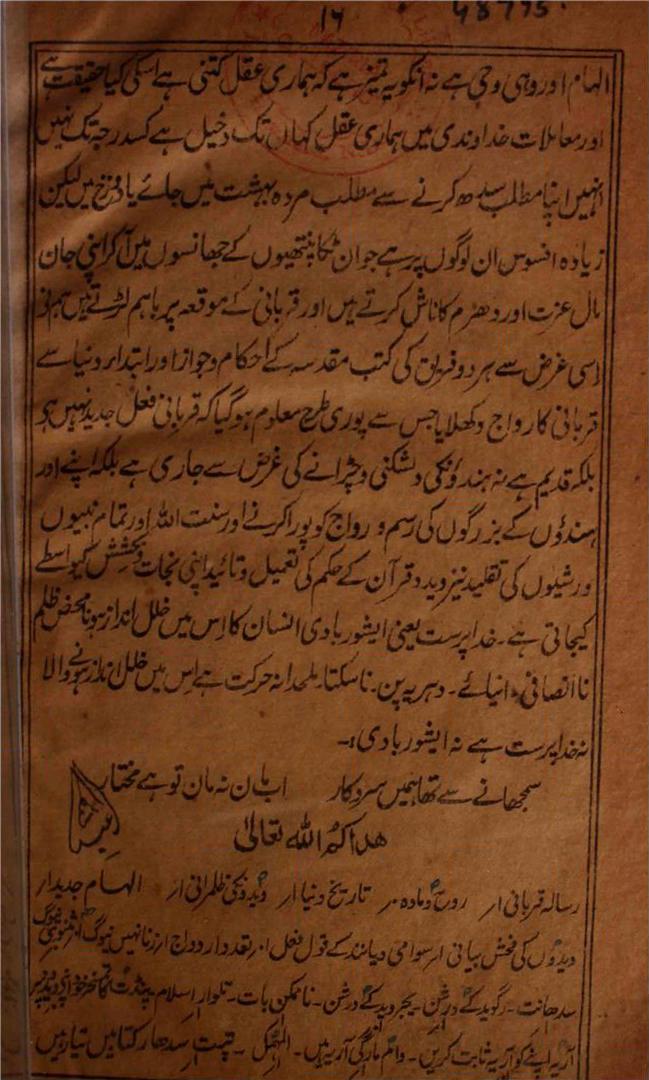 ۱۶
48775.
الہام اور وہی وحی ہے نہ انکو یہ تمیز ہے کہ ہماری عقل کتنی ہے اسکی کیا حقیقت ہے
اور معاملات خداوندی میں ہماری عقل کہاں تک دخیل ہے کسدرجہ تک نہیں
انہیں اپنا مطلب سدھ کرنے سے مطلب مردہ بہشت میں جائے یا دوزخ میں لیکن
زیادہ افسوس ان لوگوں پر ہے جو ان ٹکا پنتھیوں کے جھانسوں میں آکر اپنی جان
مال عزت اور دھرم کا ناش کرتے ہیں اور قربانی کے موقعہ پر باہم لڑتے ہیں ہم نے
اسی غرض سے ہر دو فریق کی کتب مقدسہ کے احکام و جواز اور ابتدار دنیا سے
قربانی کا رواج دکھلایا جس سے پوری طرح معلوم ہو گیا کہ قربانی فعل جدید نہیں ہو
بلکہ قدیم ہے نہ ہندؤنکی دلشکنی و چڑانے کی غرض سے جاری ہے بلکہ اپنے اور
ہندؤں کے بزرگوں کی رسم و رواج کو پورا کرنے اور سنت اللہ اور تمام نبیوں
ورشیوں کی تقلید نیز وید و قرآن کے حکم کی تعمیل و تائید اپنی نجات و بخشش کیواسطے
کیجاتی ہے۔ خدا پرست یعنی ایشور بادی انسان کا اس میں خلل انداز ہونا محض ظلم
نا انصافی۔ انیائے۔ دہریہ پن۔ ناسکتا۔ ملحدانہ حرکت ہے اس میں خلل انداز ہونے والا
نہ خدا پرست ہے نہ ایشور بادی :۔
سمجھانے سے تھا ہمیں سروکار اب مان نہ مان تو ہے مختار
ھداکم اللہ تعالیٰ
رسالہ قربانی ۱ر روح و مادہ ۔ر تاریخ دنیا ۱ر ویدونکی ظلمرانی ۱ر الہام جدید ۱ر
ویدوں کی فحش بیانی ۱ر سوامی دیانند کے قول فعل ۱ر تعدد ازدواج ۱ر زنا نہیں نیوگ
سدھانت۔ رگوید کے درشن۔ یجروید کے درشن۔ ناممکن بات۔ تلوار اسلام پنڈت
آریہ اپنے کو آریہ ثابت کریں۔ وام مارگی آریہ ہیں۔ قیمت سدھار کتابیں تیار ہیں